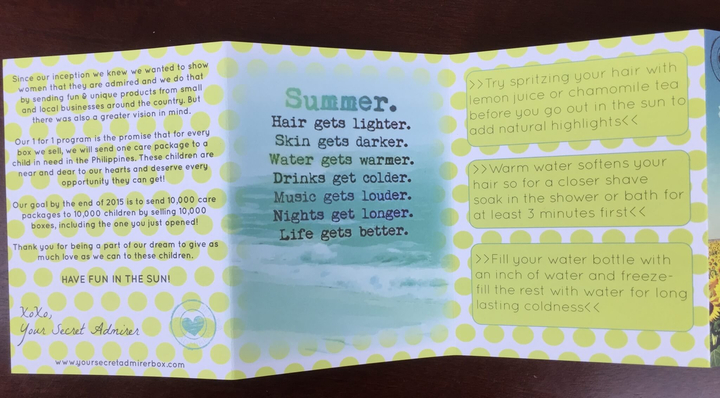 Since our inception we knew we wanted to show
women that they are admired and we do that
by sending fun & unique products from small
and local businesses around the country. But
there was also a greater vision in mind.
Our 1 for 1 program is the promise that for every
box we sell, we will send one care package to a
child in need in the Philippines. These children are
near and dear to our hearts and deserve every
opportunity they can get!
Our goal by the end of 2015 is to send 10,000 care
packages to 10,000 children by selling 10,000
boxes, including the one you just opened!
Thank you for being a part of our dream to give as
much love as we can to these children.
HAVE FUN IN THE SUN!
XoXo,
Your Secret Admirer
www.yoursecretadmirerbox.com
Summer.
Hair gets lighter.
Skin gets darker.
Water gets warmer.
Drinks get colder.
Music gets louder.
Nights get longer.
Life gets better.
>>Try spritzing your hair with
lemon juice or chamomile tea
before you go out in the sun to
add natural highlights<<
>>Warm water softens your
hair so for a closer shave
soak in the shower or bath for
at least 3 minutes first<<
>>Fill your water bottle with
an inch of water and freeze-
fill the rest with water for long
lasting coldness<<